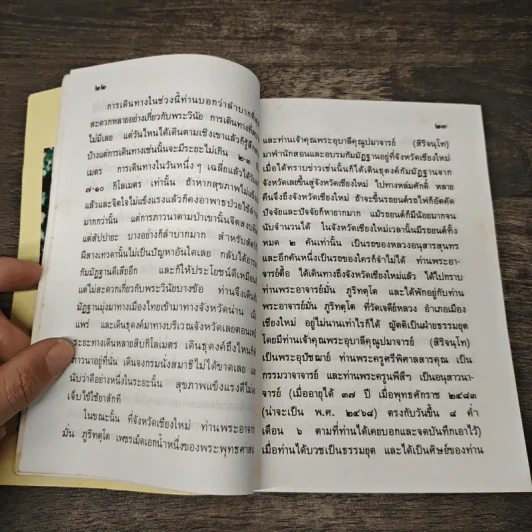 ๒๒
การเดินทางในช่วงนี้ท่านบอกว่าลำบากที่
สะดวกหลายอย่างเกี่ยวกับพระวินัย การเดินทางที่
ไม่มีเลย แต่วันไหนได้เดินตามเชิงเขาแล้วก็รู้สึก
บ้างแต่การเดินทางเช่นนั้นจะมีระยะไม่เกิน ๒-๓
เมตร การเดินทางในวันหนึ่ง ๆ เฉลี่ยแล้วได้
๗-๑๐ กิโลเมตร เท่านั้น ถ้าหากสุขภาพไม่
แล้วและจิตใจไม่แข็งแรงแล้วก็คงอาพาธป่วยไข้
มากกว่านั้น แต่การภาวนาตามป่าเขานั้นจิตสงบ
แต่สัปปายะ บางอย่างก็ลำบากมาก สำหรับ
ฝีสางเทวดานั้นไม่เป็นปัญหาอันใดเลย กลับได้
กัมมัฏฐานดีเสียอีก และก็ให้ประโยชน์ดีเหมือน
แต่ไม่สะดวกเกี่ยวกับพระวินัยบางข้อ ท่านจึงเดิน
กัมมัฏฐานมุ่งมาทางเมืองไทยเข้ามาทางจังหวัดน่าน
แพร่ และเดินธุดงค์มาทางบริเวณจังหวัดเลยตอน
ระยะทางเดินหลายสิบกิโลเมตร เดินธุดงค์ถึงไหนก็
ภาวนาอยู่ที่นั่น เดินจงกรมนั่งสมาธิไม่ได้ขาดเลย
นับว่าดีอย่างหนึ่งในระยะนั้น สุขภาพแข็งแรงดีไม่
เจ็บไข้ใช้ยาสักที
ในขณะนั้น ที่จังหวัดเชียงใหม่ ท่านพระอาจารย์
มั่น ภูริทตฺโต เพชรเม็ดเอกน้ำหนึ่งของพระพุทธศาสนา
๒๓
และท่านเจ้าคุณพระอุบาลีคุณูปมาจารย์ (สิริจนฺโท)
มาพำนักสอนและอบรมกัมมัฏฐานอยู่ที่จังหวัดเชียงใหม่
เมื่อได้ทราบข่าวเช่นนั้นก็ได้เดินธุดงค์กัมมัฏฐานจาก
จังหวัดเลยขึ้นสู่จังหวัดเชียงใหม่ ไปทางหล่มศักดิ์ หลาย
คืนจึงถึงจังหวัดเชียงใหม่ ถ้าจะขึ้นรถยนต์รถไฟก็อัตคัด
ปัจจัยและปัจจัยก็หายากมาก แม้รถยนต์ก็มีน้อยมากจน
นับจำนวนได้ ในจังหวัดเชียงใหม่เวลานั้นมีรถยนต์ทั้ง
หมด ๒ คันเท่านั้น เป็นรถของหลวงอนุสารสุนทร
และอีกคันหนึ่งเป็นรถของใครก็จำไม่ได้ ท่านพระอา-
จารย์ตื้อ ได้เดินทางถึงจังหวัดเชียงใหม่แล้ว ได้ไปกราบ
ท่านพระอาจารย์มั่น ภูริทตฺโต และได้พักอยู่กับท่าน
พระอาจารย์มั่น ภูริทตฺโต ที่วัดเจดีย์หลวง อำเภอเมือง
เชียงใหม่ อยู่ไม่นานเท่าไรก็ได้ ญัตติเป็นฝ่ายธรรมยุต
โดยมีท่านเจ้าคุณพระอุบาลีคุณูปมาจารย์ (สิริจนฺโท)
เป็นพระอุปัชฌาย์ ท่านพระครูศรีพิศาลสารคุณ เป็น
กรรมวาจาจารย์ และท่านพระครูนพีสีฯ เป็นอนุสาวนา-
จารย์ (เมื่ออายุได้ ๓๗ ปี เมื่อพุทธศักราช ๒๔๘๓
(น่าจะเป็น พ.ศ. ๒๔๖๘) ตรงกับวันขึ้น ๘ ค่ำ
เดือน ๖ ตามที่ท่านได้เคยบอกและจดบันทึกเอาไว้)
เมื่อท่านได้บวชเป็นธรรมยุต และได้เป็นศิษย์ของท่าน